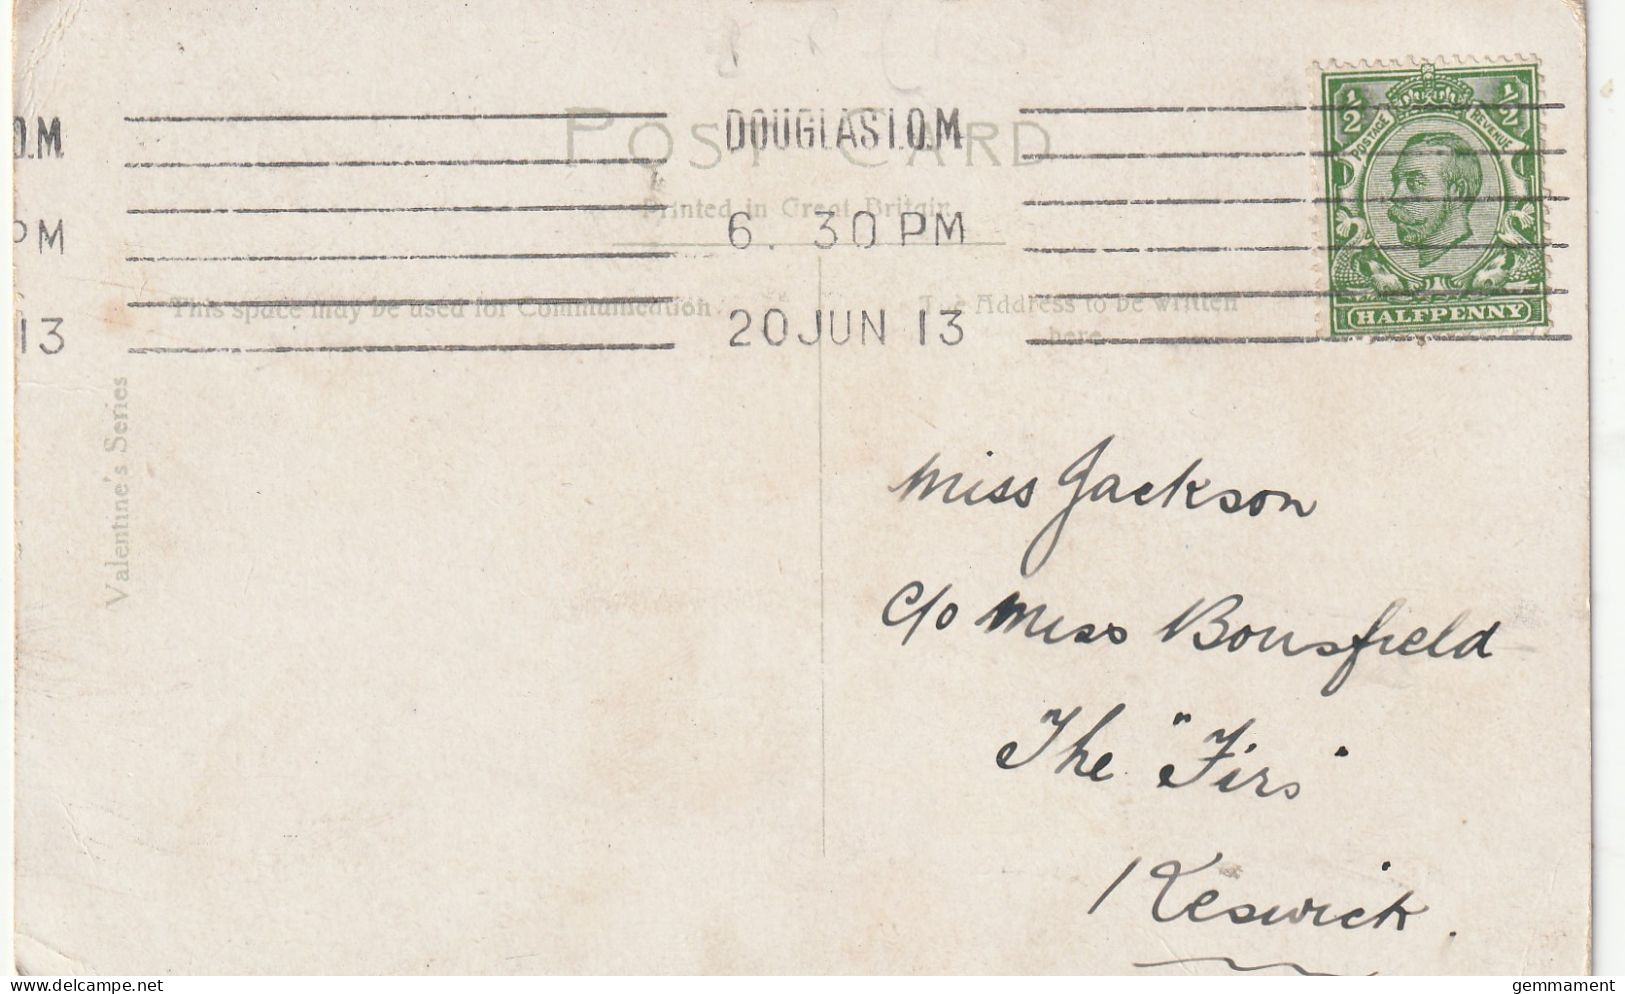 POST CARD
Printed in Great Britain
O.M.
DOUGLAS I.O.M
PM
6. 30 PM
13
20 JUN 13
½ ½
POSTAGE REVENUE
HALFPENNY
This space may be used for Communication.
The Address to be written
here
Valentine's Series
Miss Jackson
c/o Miss Bousfield
The "Firs"
Keswick.
delcampe.net
gemmament